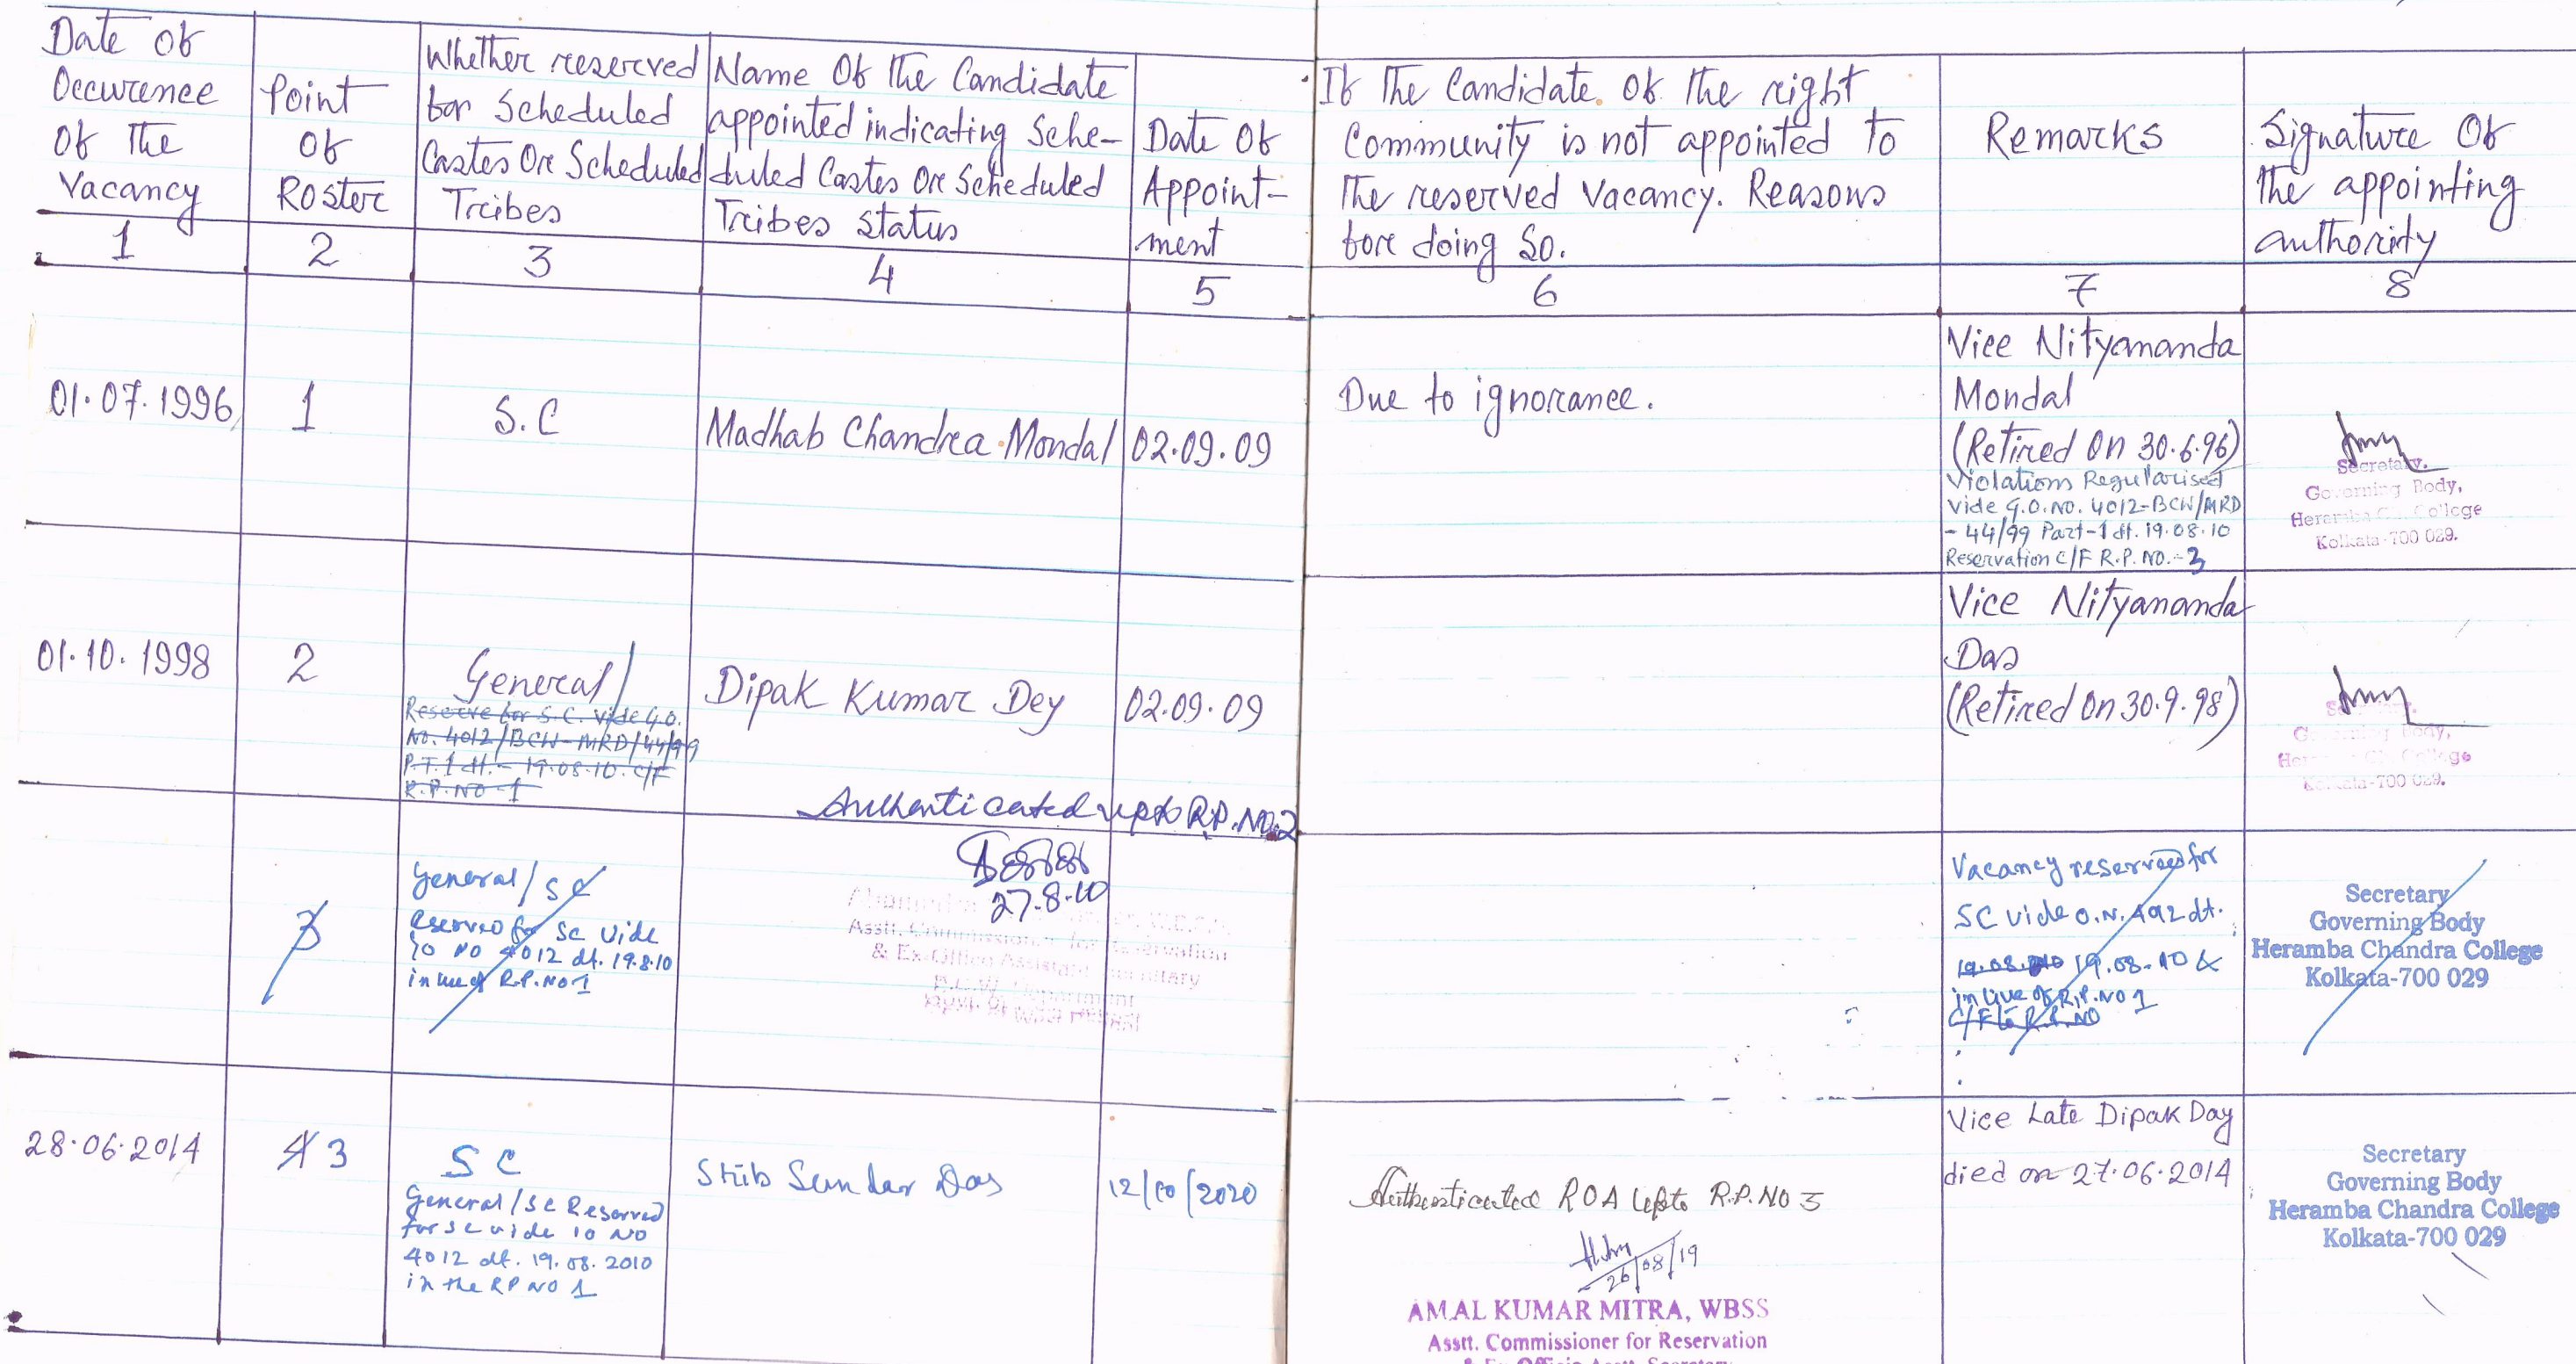 Date Of
Occurence
Of the
Vacancy
Point
Of
Roster
Whether reserved
for Scheduled
Castes Or Scheduled
Tribes
Name Of the Candidate
appointed indicating Sche-
duled Castes Or Scheduled
Tribes Status
Date Of
Appoint-
ment
If The Candidate Of the right
Community is not appointed to
the reserved Vacancy. Reasons
for doing So.
Remarks
Signature Of
the appointing
authority
1 2 3 4 5 6 7 8
01.07.1996 1 S.C Madhab Chandra Mondal 02.09.09
Due to ignorance.
Vice Nityananda
Mondal
(Retired On 30.6.96)
Violations Regularised
Vide G.O.NO. 4012-BCW/MRD
- 44/99 Part-1 dt. 19.08.10
Reservation C/F R.P. NO.-3
Secretary.
Governing Body,
Heramba Ch. College
Kolkata-700 029.
01.10.1998 2 General/
Reserve for S.C. Vide G.O.
No. 4012/BCW-MRD/44/99
P.T. 1 dt. - 19.08.10. C/F
R.P. NO 1
Dipak Kumar Dey 02.09.09
Vice Nityananda
Das
(Retired On 30.9.98)
Governing Body,
College
Kolkata-700 029.
Authenticated upto R.P. NO.2
27.8.10
Asstt. Commissioner for Reservation
& Ex-Officio Assistant Secretary
B.C.W. Department
3
General/SC
eserved for SC vide
NO 4012 dt. 19.8.10
R.P. NO 1
Vacancy reserved for
SC vide O.N. 492 dt.
19.08.10 &
in live of R.P. NO 1
C/F to R.P. NO
Secretary
Governing Body
Heramba Chandra College
Kolkata-700 029
28.06.2014 4 3 SC
General/SC Reserved
for SC vide 10 NO
4012 dt. 19.08.2010
in the RP NO 1
Sundar Das
12/10/2020
Authenticated ROA upto R.P. NO 3
26/08/19
AMAL KUMAR MITRA, WBSS
Asstt. Commissioner for Reservation
Vice Late Dipak Day
died on 27.06.2014
Secretary
Governing Body
Heramba Chandra College
Kolkata-700 029